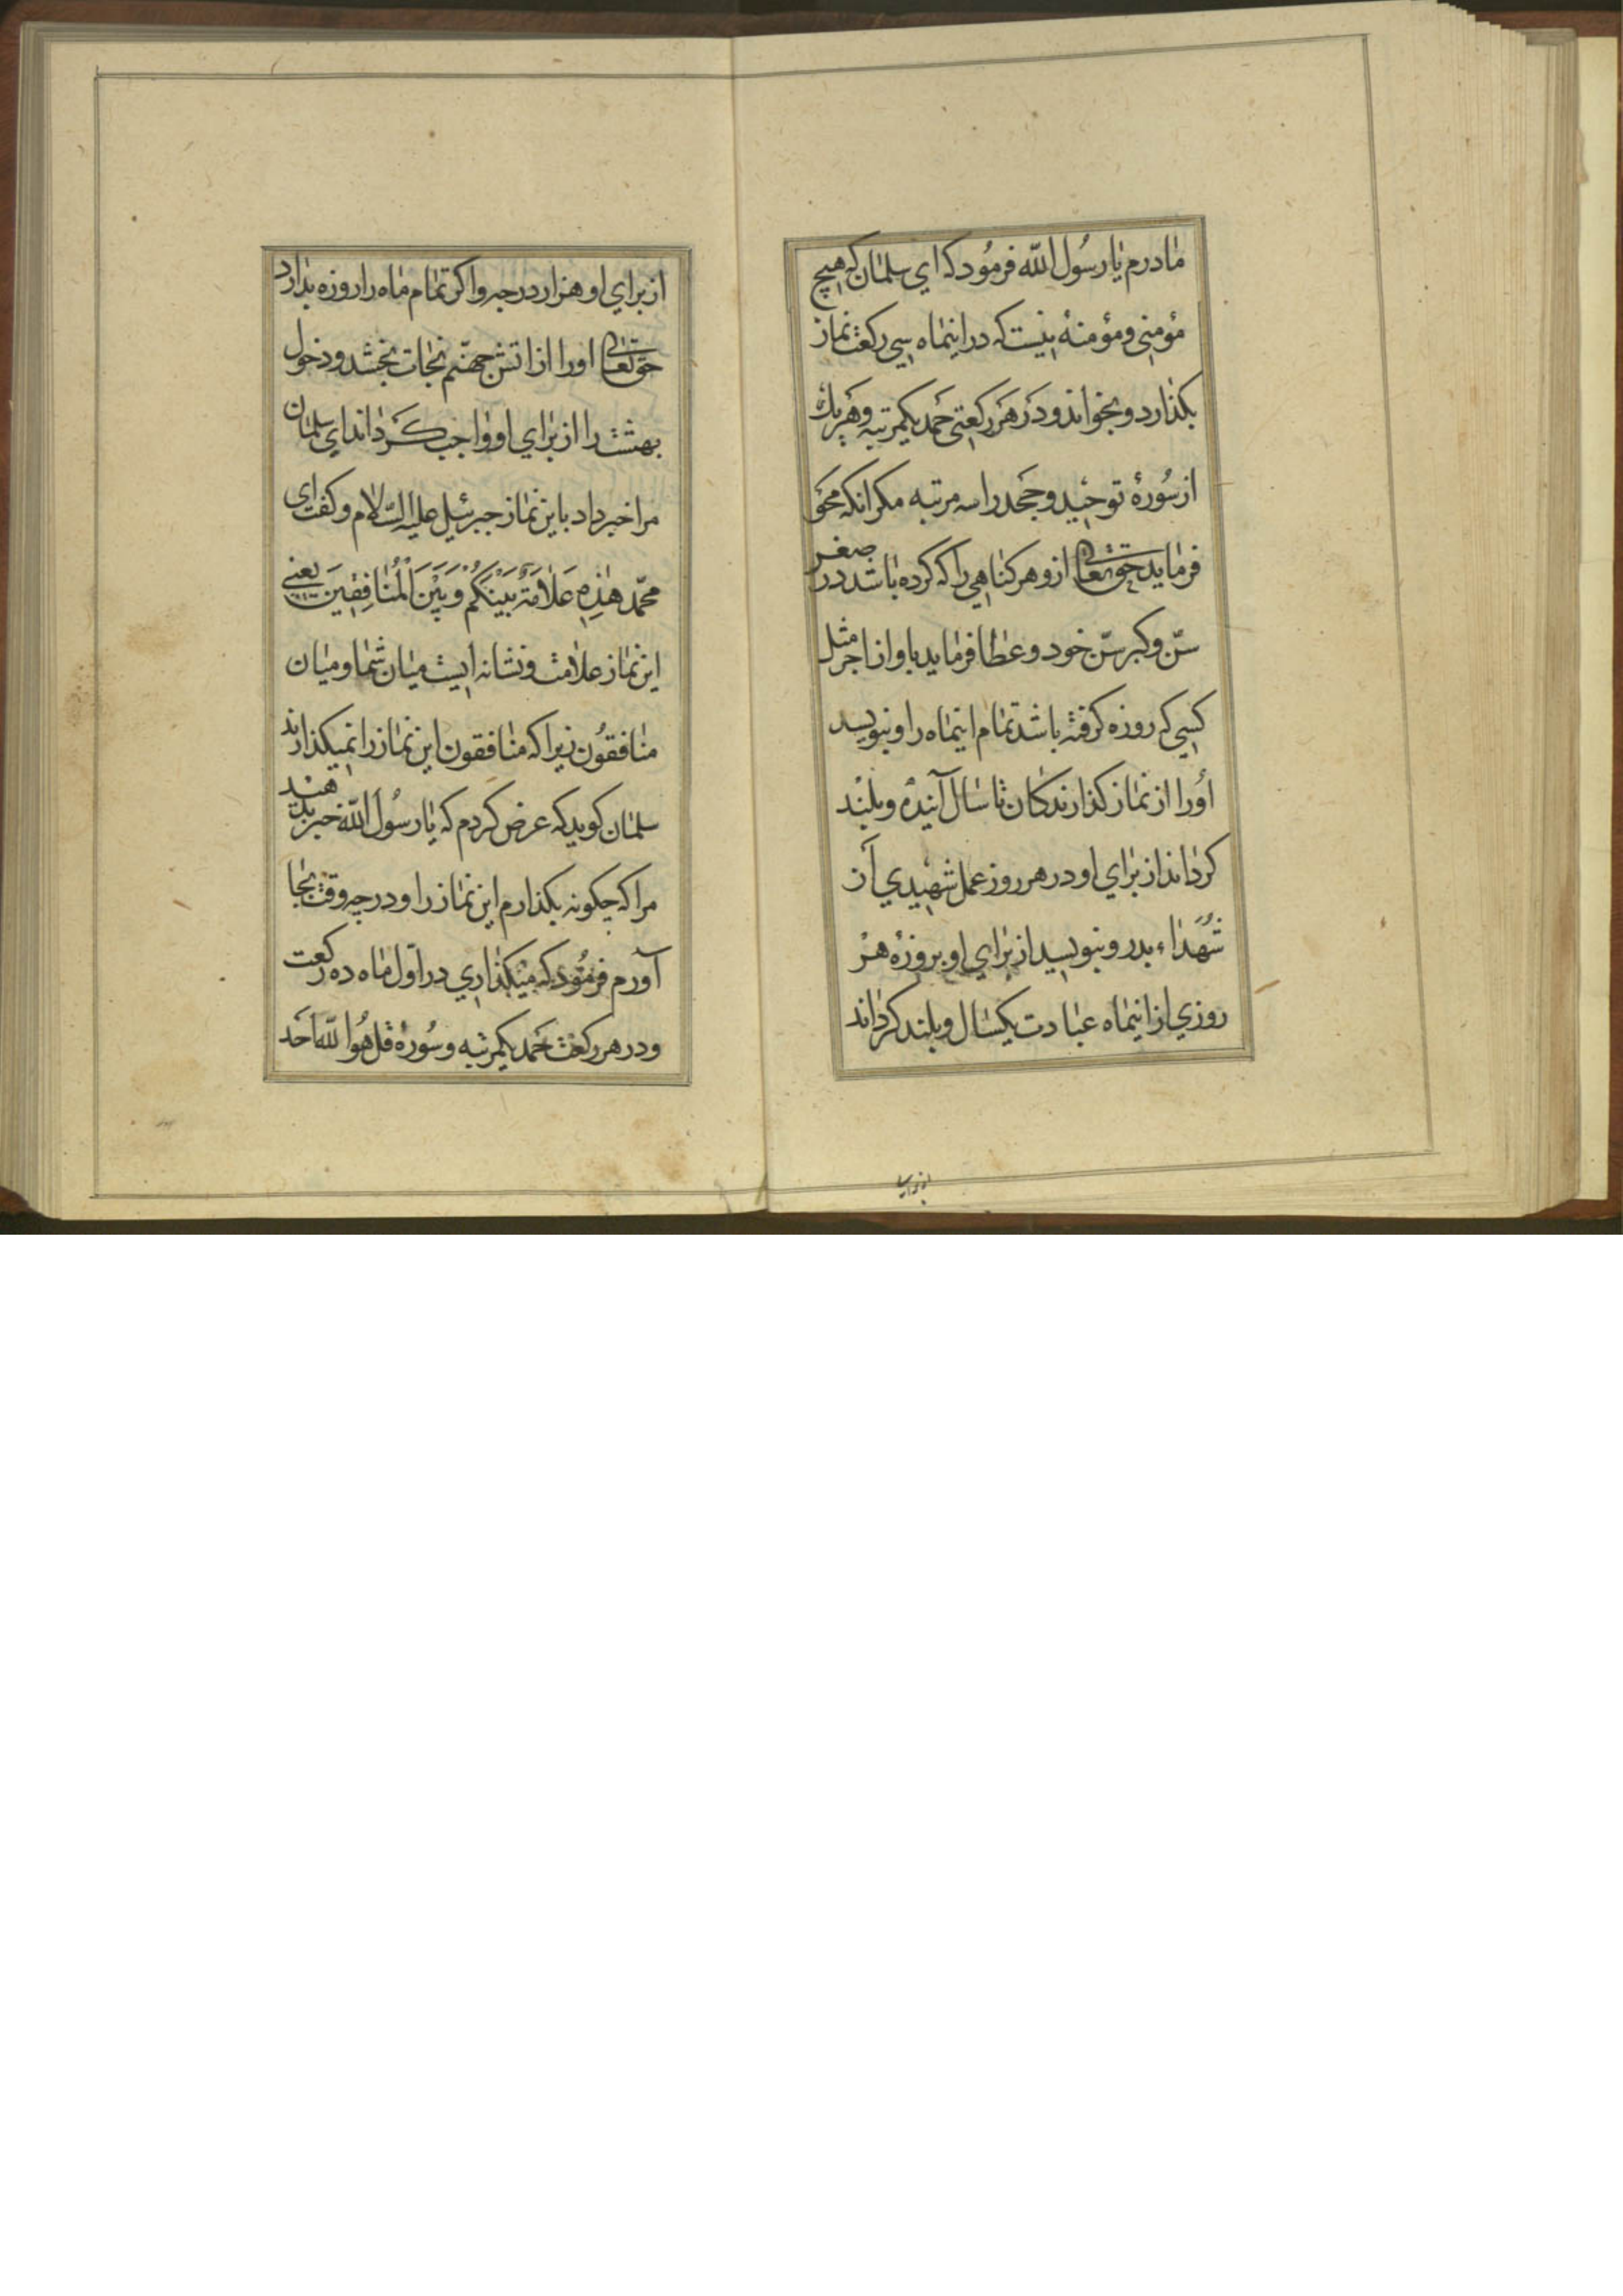 مادرم یا رسول الله فرمود که ای سلمان که هیچ
مؤمنی و مؤمنهٔ نیست که در اینماه سی رکعت نماز
بکذارد و بخواند و در هر رکعتی حمد یکمرتبه و هر یك
از سورهٔ توحید و جحد را سه مرتبه مکر انکه محو
فرماید حق تعالی ازو هر کناهی را که کرده باشد در صغر
سنّ و کبر سنّ خود و عطا فرماید باو از اجر مثل
کسی که روزه کرفته باشد تمام اینماه را و نبویسد
اورا از نماز کذارندکان تا سال آینده و بلند
کرداند از برای او در هر روز عمل شهیدی از
شهداء بدر و نبویسد از برای او بروزهٔ هر
روزی از اینماه عبادت یکسال و بلند کرداند
از برای او هزار درجه و اکر تمام ماه را روزه بدارد
حق تعالی اورا از اتش جهنّم نجات بخشد و دخول
بهشت را از برای او واجب کرداند ای سلمان
مرا خبر داد باین نماز جبرئیل علیه السّلام و کفت ای
محمّد هٰذِهِ عَلَامَةٌ بَیْنَکُمْ وَ بَیْنَ الْمُنَافِقِینَ یعنی
این نماز علامت و نشانه ایست میان شما و میان
منافقون زیرا که منافقون این نماز را نمیکذارند
سلمان کوید که عرض کردم که یا رسول الله خبر بدهند
مرا که چکونه بکذارم این نماز را و در چه وقت بجا
آورم فرمود که میکذاری در اوّل ماه ده رکعت
و در هر رکعت حمد یکمرتبه و سورهٔ قل هو الله احد